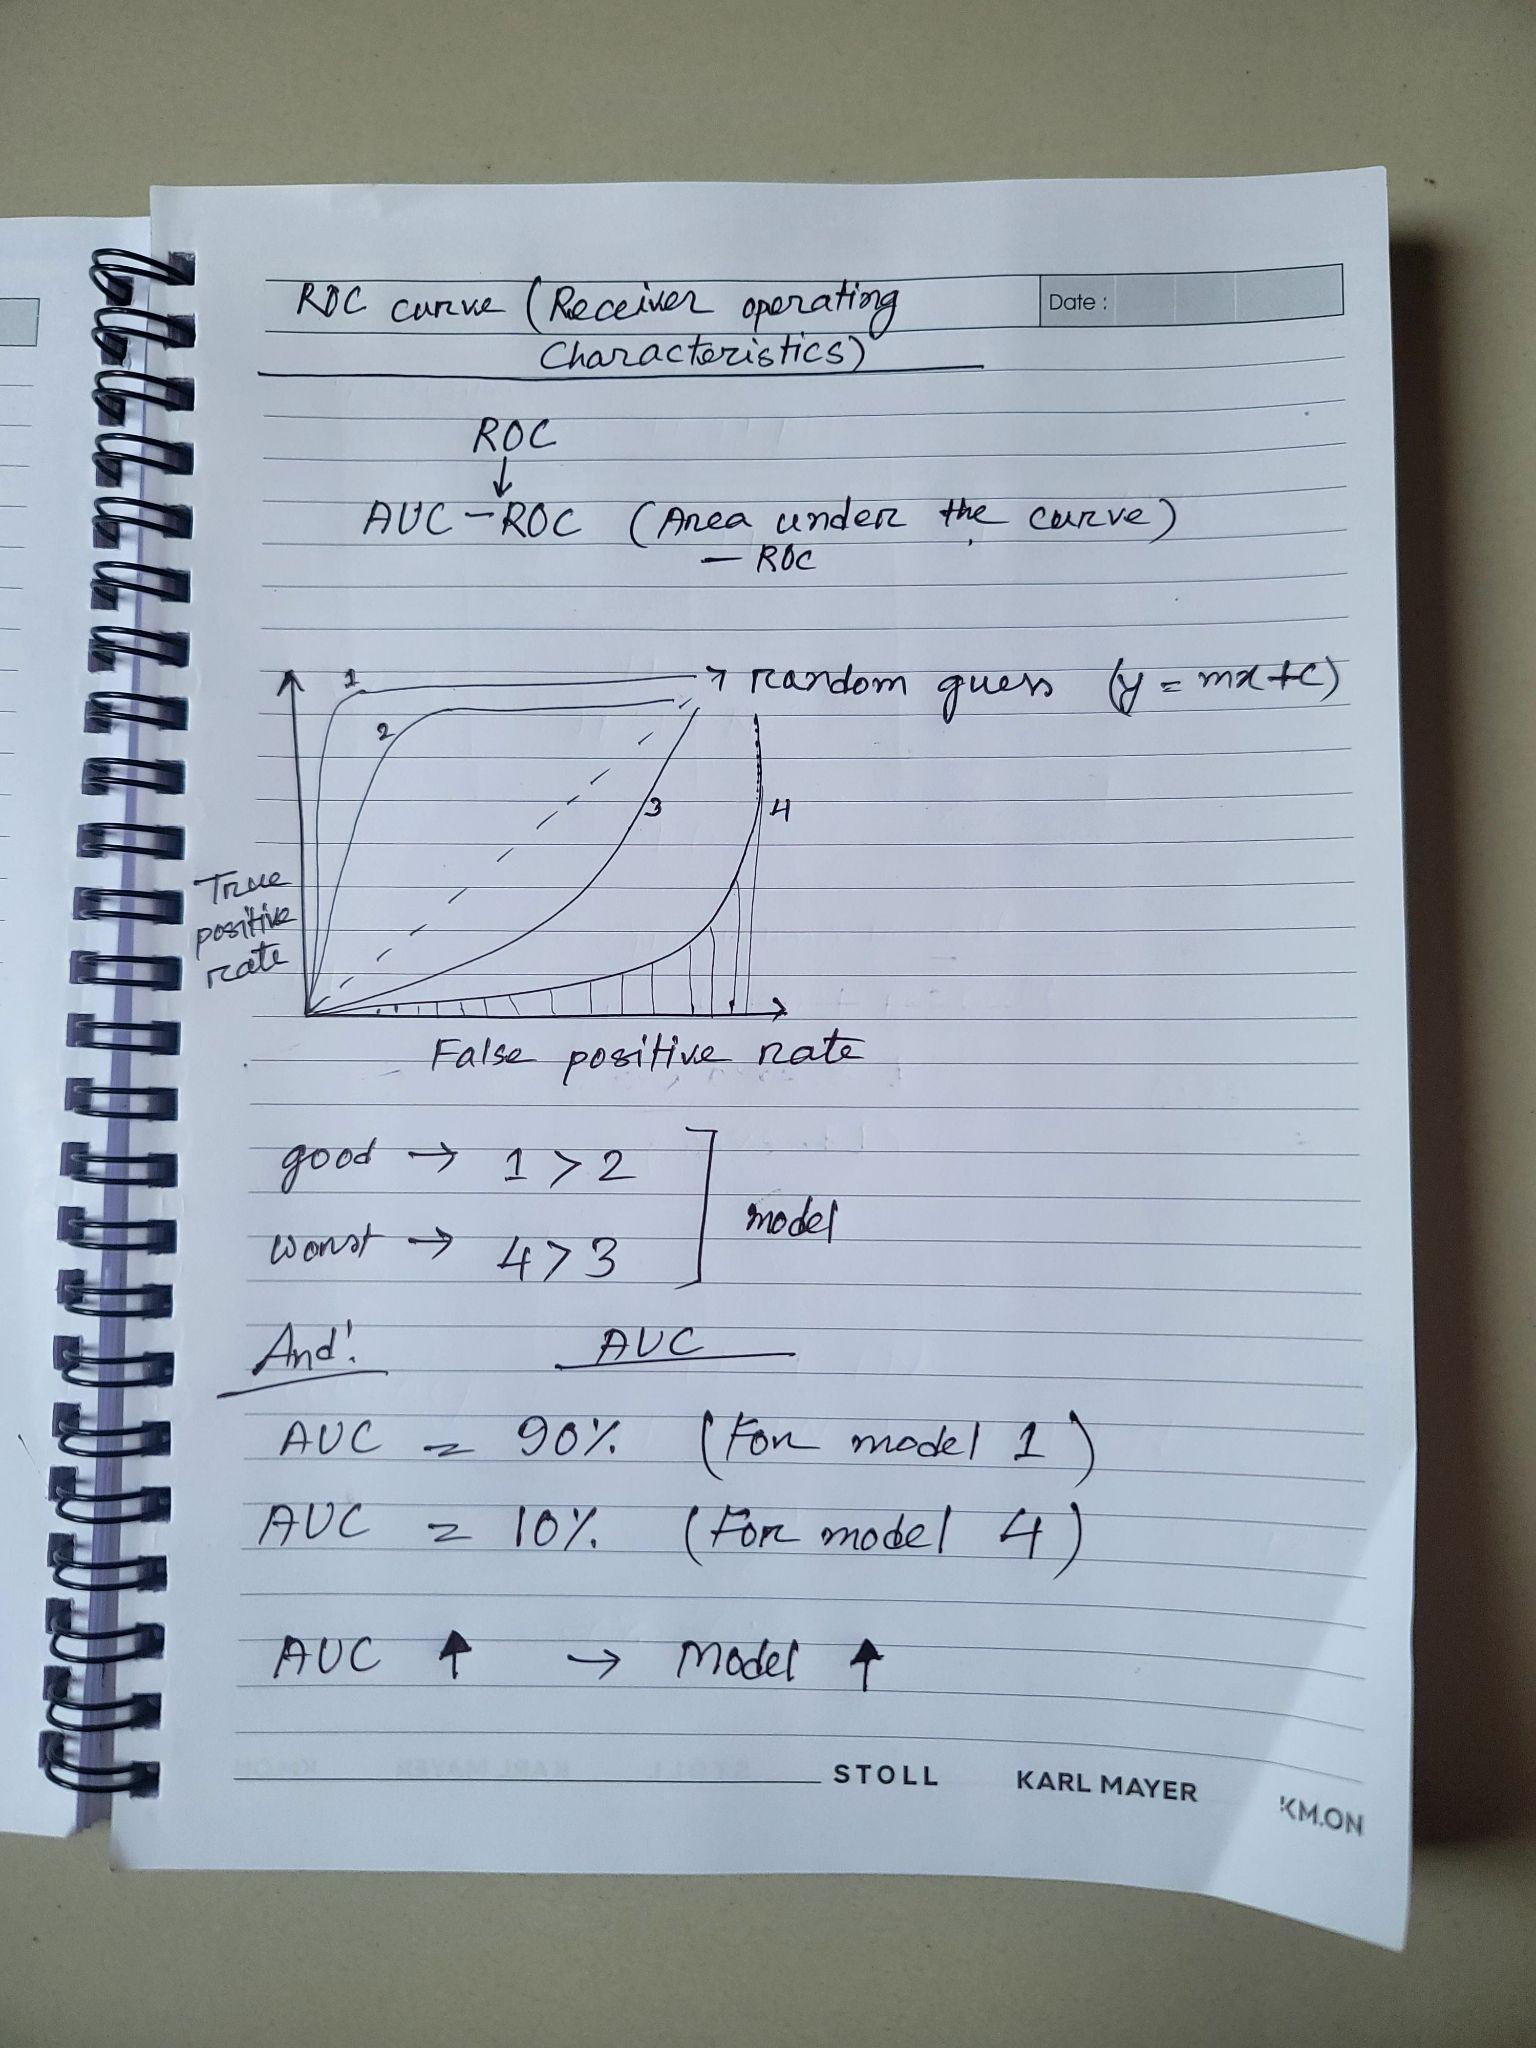 ROC curve (Receiver operating
Characteristics)
Date :
ROC
↓
AUC - ROC (Area under the curve)
- ROC
1
→ random guess (y = mx + c)
2
3
4
True
positive
rate
False positive rate
good → 1 > 2
model
worst → 4 > 3
And!
AUC
AUC = 90% (For model 1)
AUC = 10% (For model 4)
AUC ↑ → Model ↑
STOLL KARL MAYER KM.ON